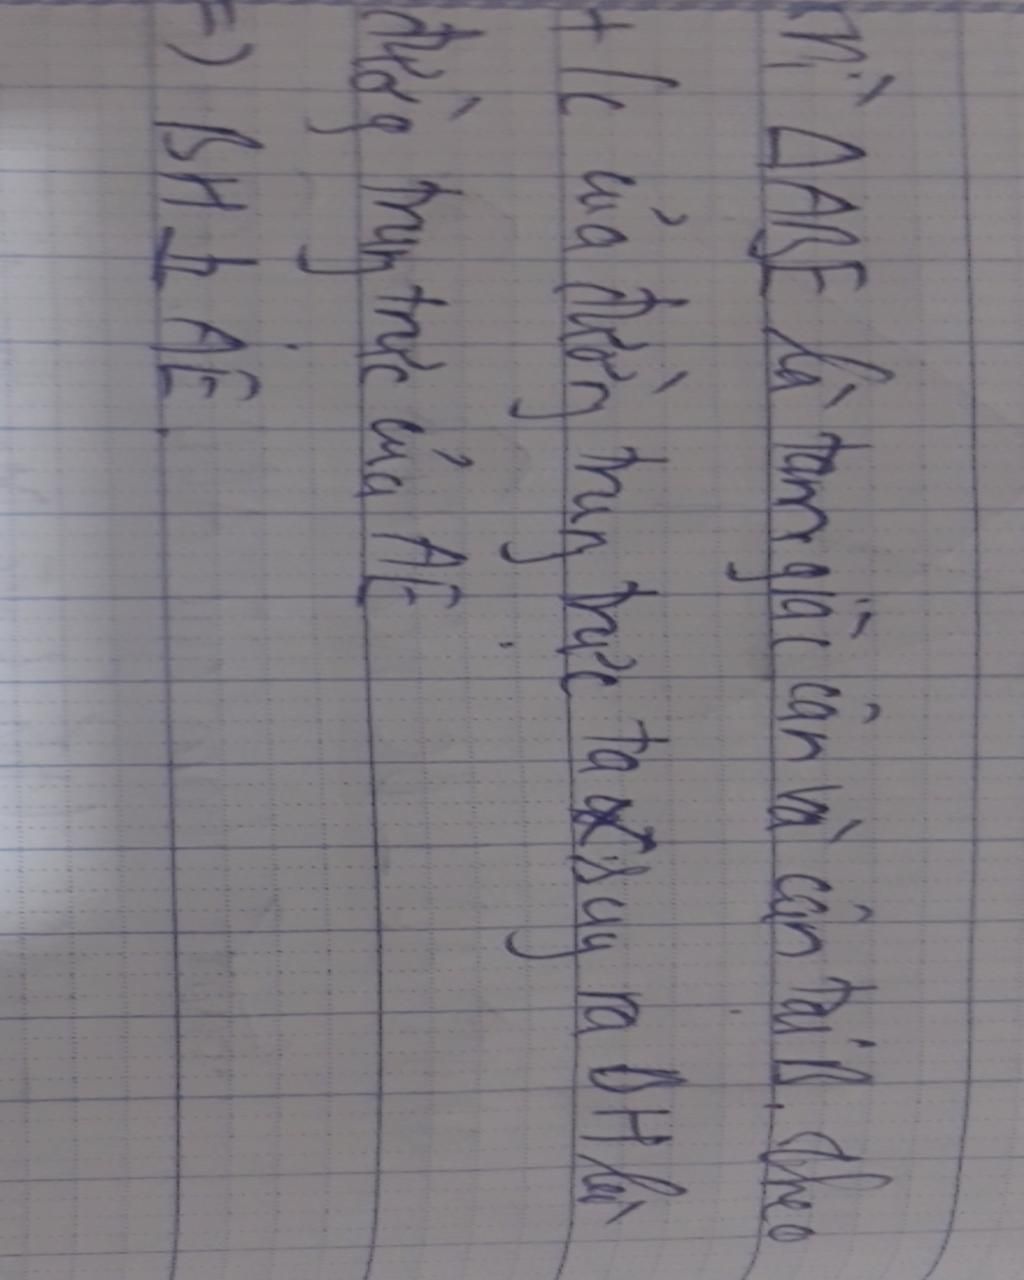 Vì ΔABE là tam giác cân và cân tại B. Theo
t/c của đường trung trực ta suy ra BH là
đường trung trực của AE
=) BH ⊥ AE.